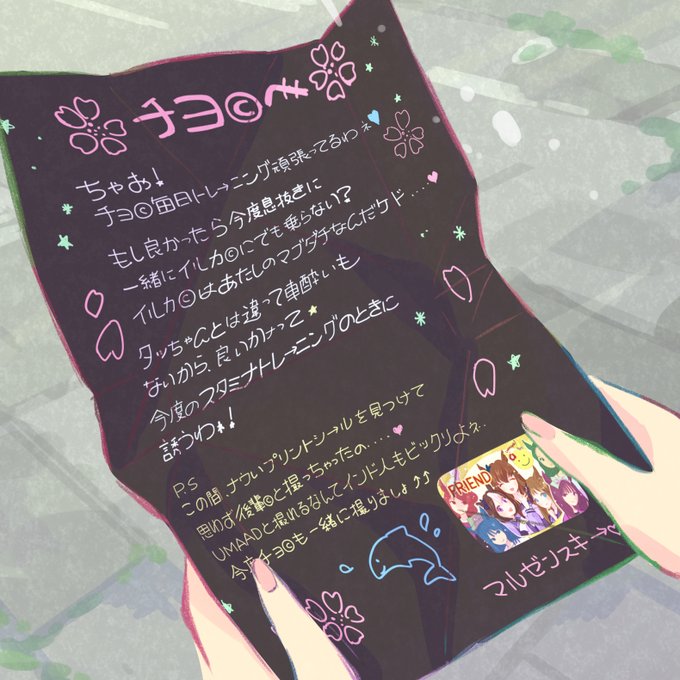 チヨ©へ
ちゃお!
チヨ©毎日トレーニング頑張ってるわネ
もし良かったら今度息抜きに
一緒にイルカ©にでも乗らない?
イルカ©はあたしのマブダチなんだケド....
タッちゃんとは違って車酔いも
ないから、良いかけって
今度のスタミナトレーニングのときに
誘うわネ!
P.S
この間、ナウいプリントシールを見つけて
思わず後輩©と撮っちゃったの....
UMAADと撮れるなんてインド人もビックリよぇ..
今度チヨ©も一緒に撮りましょ
FRIEND
マルゼンスキー